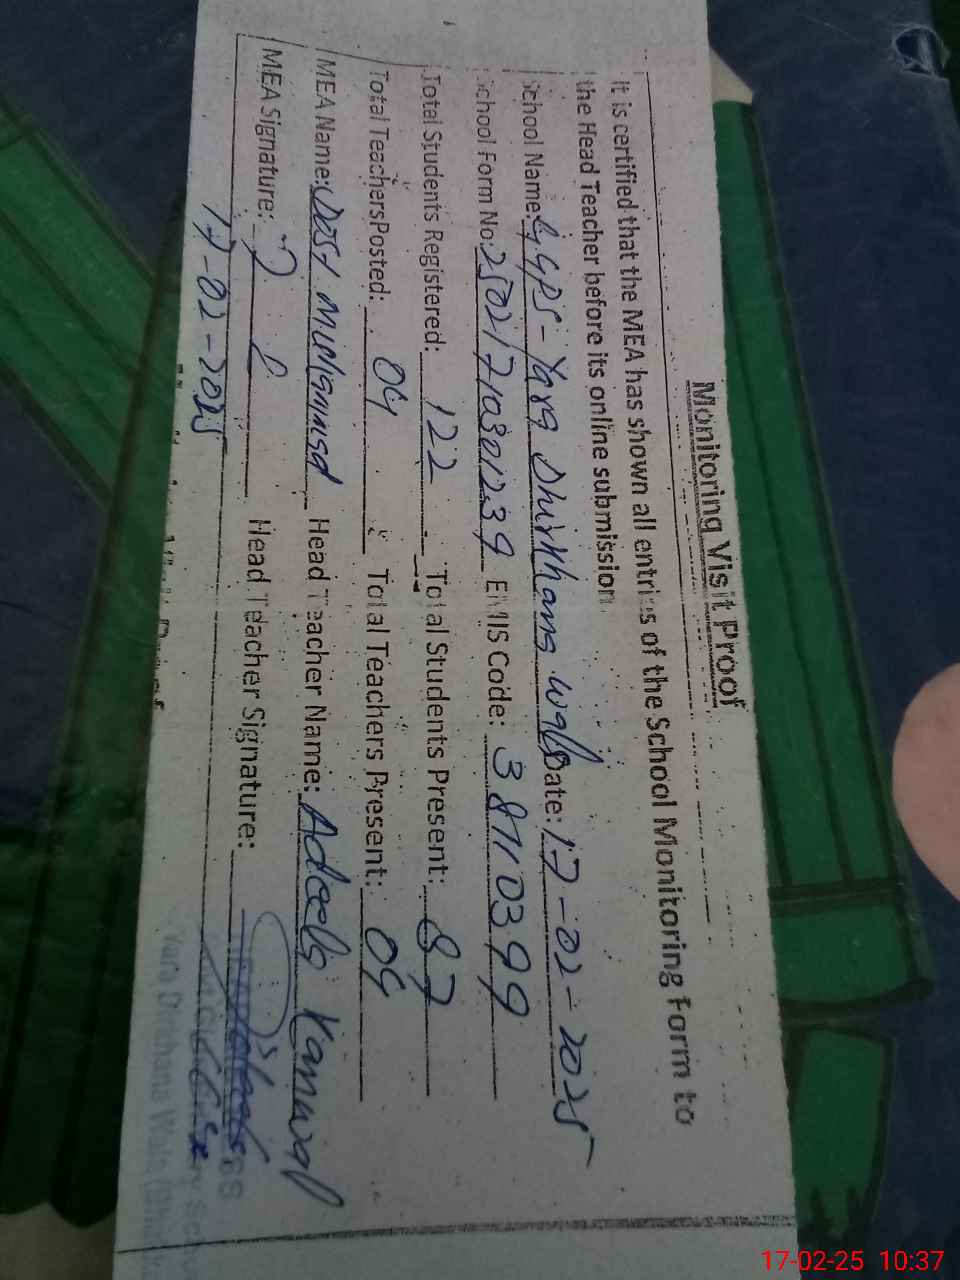 Monitoring Visit Proof
It is certified that the MEA has shown all entries of the School Monitoring Form to
the Head Teacher before its online submission.
School Name: GGPS - Yara Dhirkhana wala Date: 17-02-2025
School Form No: 25021710301239 EMIS Code: 38710399
Total Students Registered: 122 Total Students Present: 87
Total Teachers Posted: 04 Total Teachers Present: 04
MEA Name: Dost Muhammad Head Teacher Name: Adeela Kanwal
MEA Signature: Head Teacher Signature:
17-02-2025
17-02-25 10:37